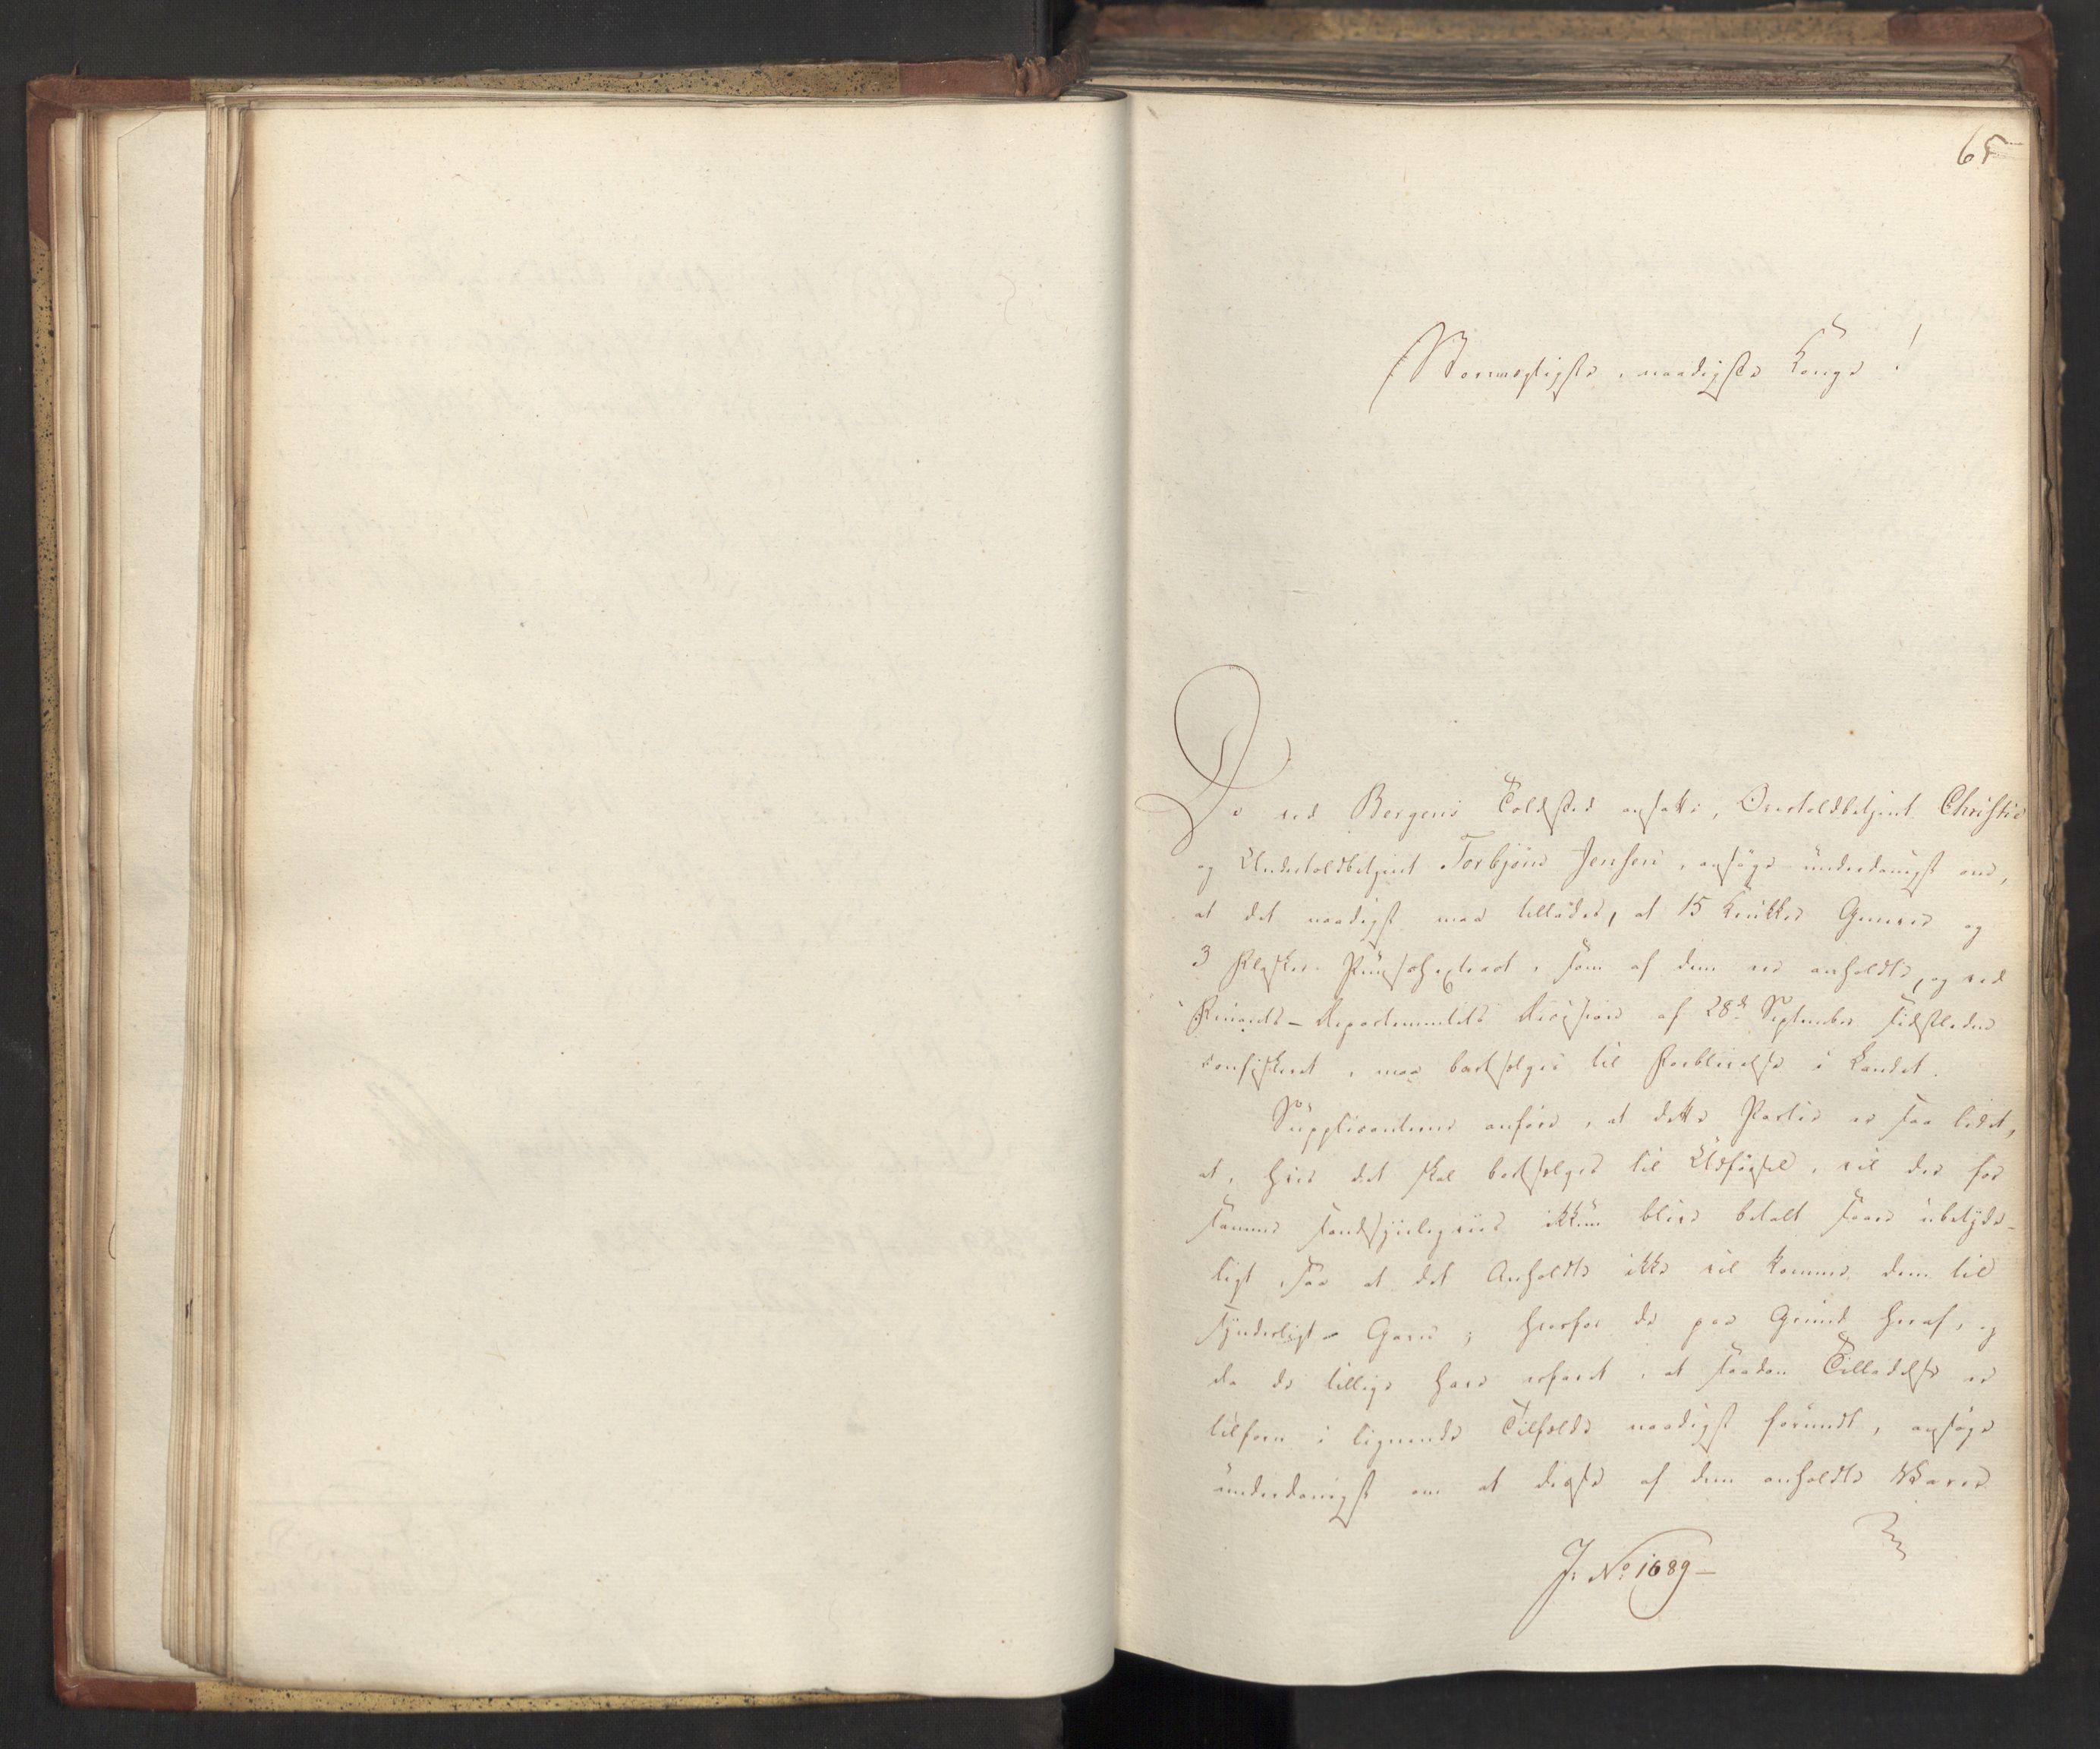 65
Stormægtigste, naadigste Konge!
De ved Bergens Toldsted ansatte, Overtoldbetjent Christie
og Undertoldbetjent Torbjörn Jensen, ansöge underdanigst om,
at det naadigst maa tillades, at 15 Krukker Genever og
3 Flasker Punschextract, som af dem er anholdte, og ved
Finants-Departementets Decision af 28de September sidstleden
confiskeret, maa bortsælges til Forblivelse i Landet.
Supplicanterne anföre, at dette Partie er saa lidet,
at, hvis det skal bortsælges til Udförsel, vil der for
samme sandsynligviis ikkun blive betalt saare ubetyde-
ligt, saa at det Anholdte ikke vil komme dem til
synderligt Gavn; hvorfor de paa Grund heraf, og
da de tillige have erfaret, at saadan Tilladelse er
tilforn i lignende Tilfælde naadigst forundt, ansöge
underdanigst om at disse af dem anholdte Varer
J: No 1689-